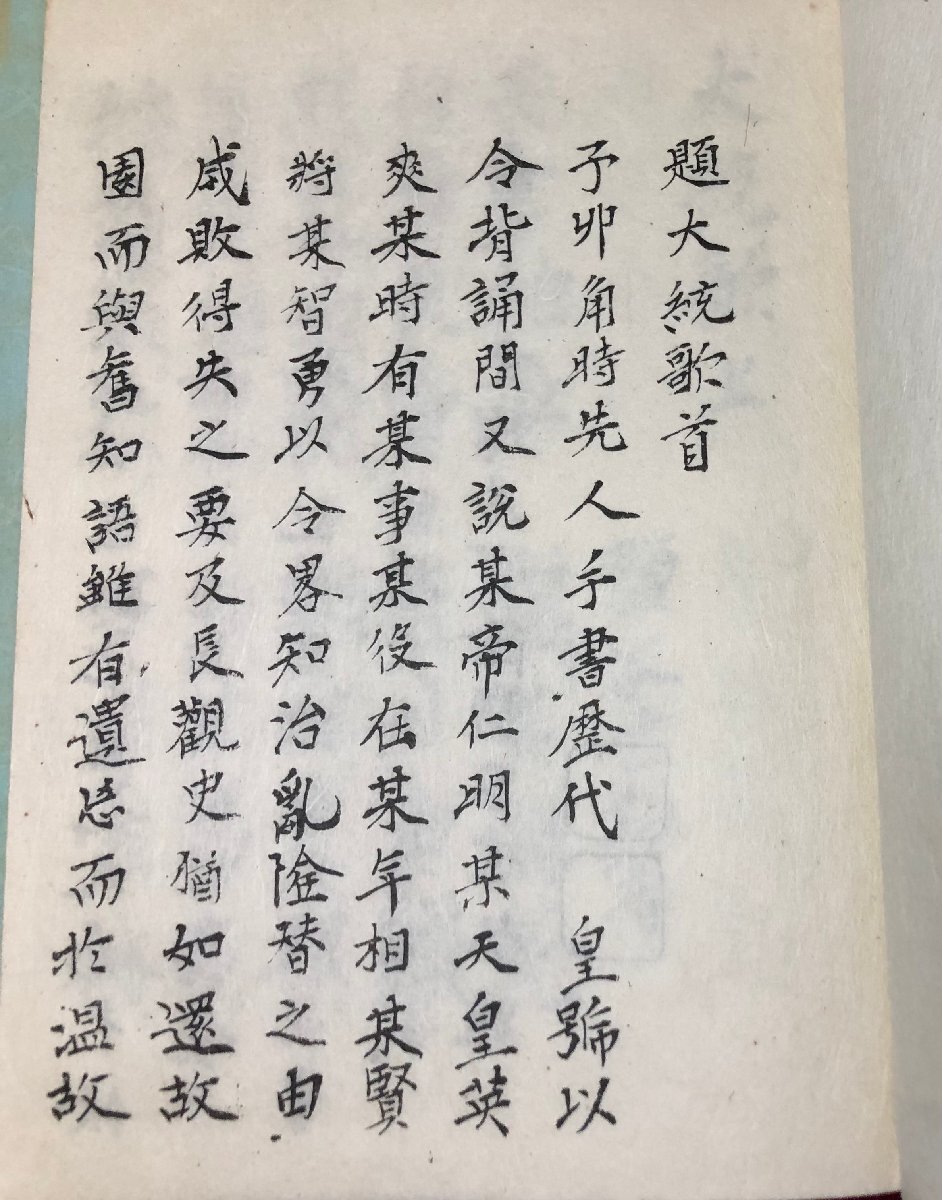 題大統歌首
予丱角時先人手書歴代　皇號以
令背誦間又說某帝仁明某天皇英
爽某時有某事某役在某年相某賢
將某智勇以令畧知治亂隆替之由
成敗得失之要及長觀史猶如還故
園而與舊知語雖有遺忘而於温故